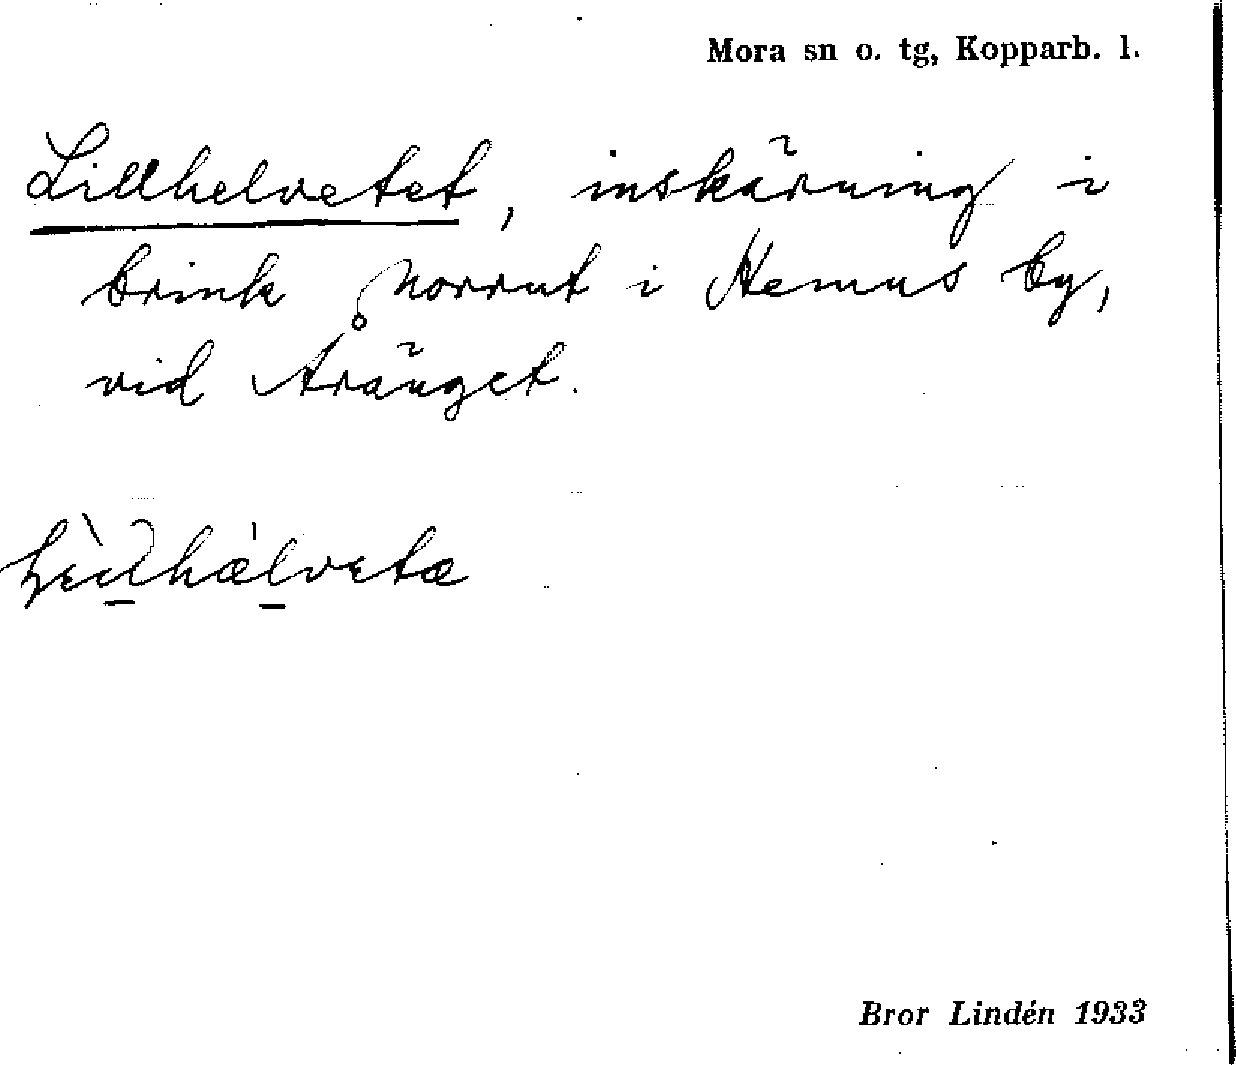 Mora sn o. tg, Kopparb. l.
Lillhelvetet, inskärning i
brink norrut i Hemus by,
vid Åränget.
Bror Lindén 1933